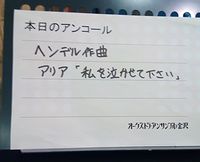 本日のアンコール
ヘンデル作曲
アリア「私を泣かせて下さい」
オーケストラ・アンサンブル金沢